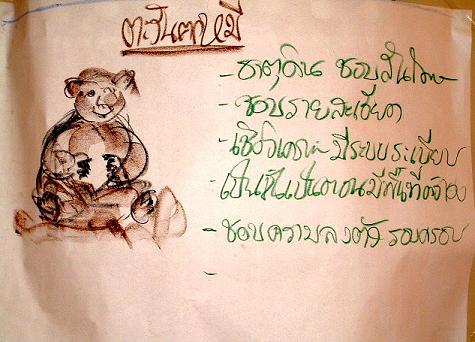 ตะวันตกหมี
- ธาตุดิน ชอบสันโดษ
- ชอบรายละเอียด
- มีระบบระเบียบ
- เป็นขั้นเป็นตอน มีพื้นที่
- ชอบความลงตัว รอบครอบ
-